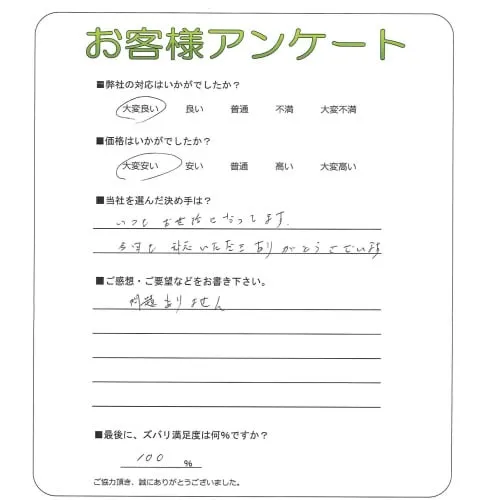 お客様アンケート
■弊社の対応はいかがでしたか？
大変良い 良い 普通 不満 大変不満
■価格はいかがでしたか？
大変安い 安い 普通 高い 大変高い
■当社を選んだ決め手は？
いつもお世話になってます。
今回も対応いただきありがとうございます
■ご感想・ご要望などをお書き下さい。
問題ありません
■最後に、ズバリ満足度は何%ですか？
100 %
ご協力頂き、誠にありがとうございました。